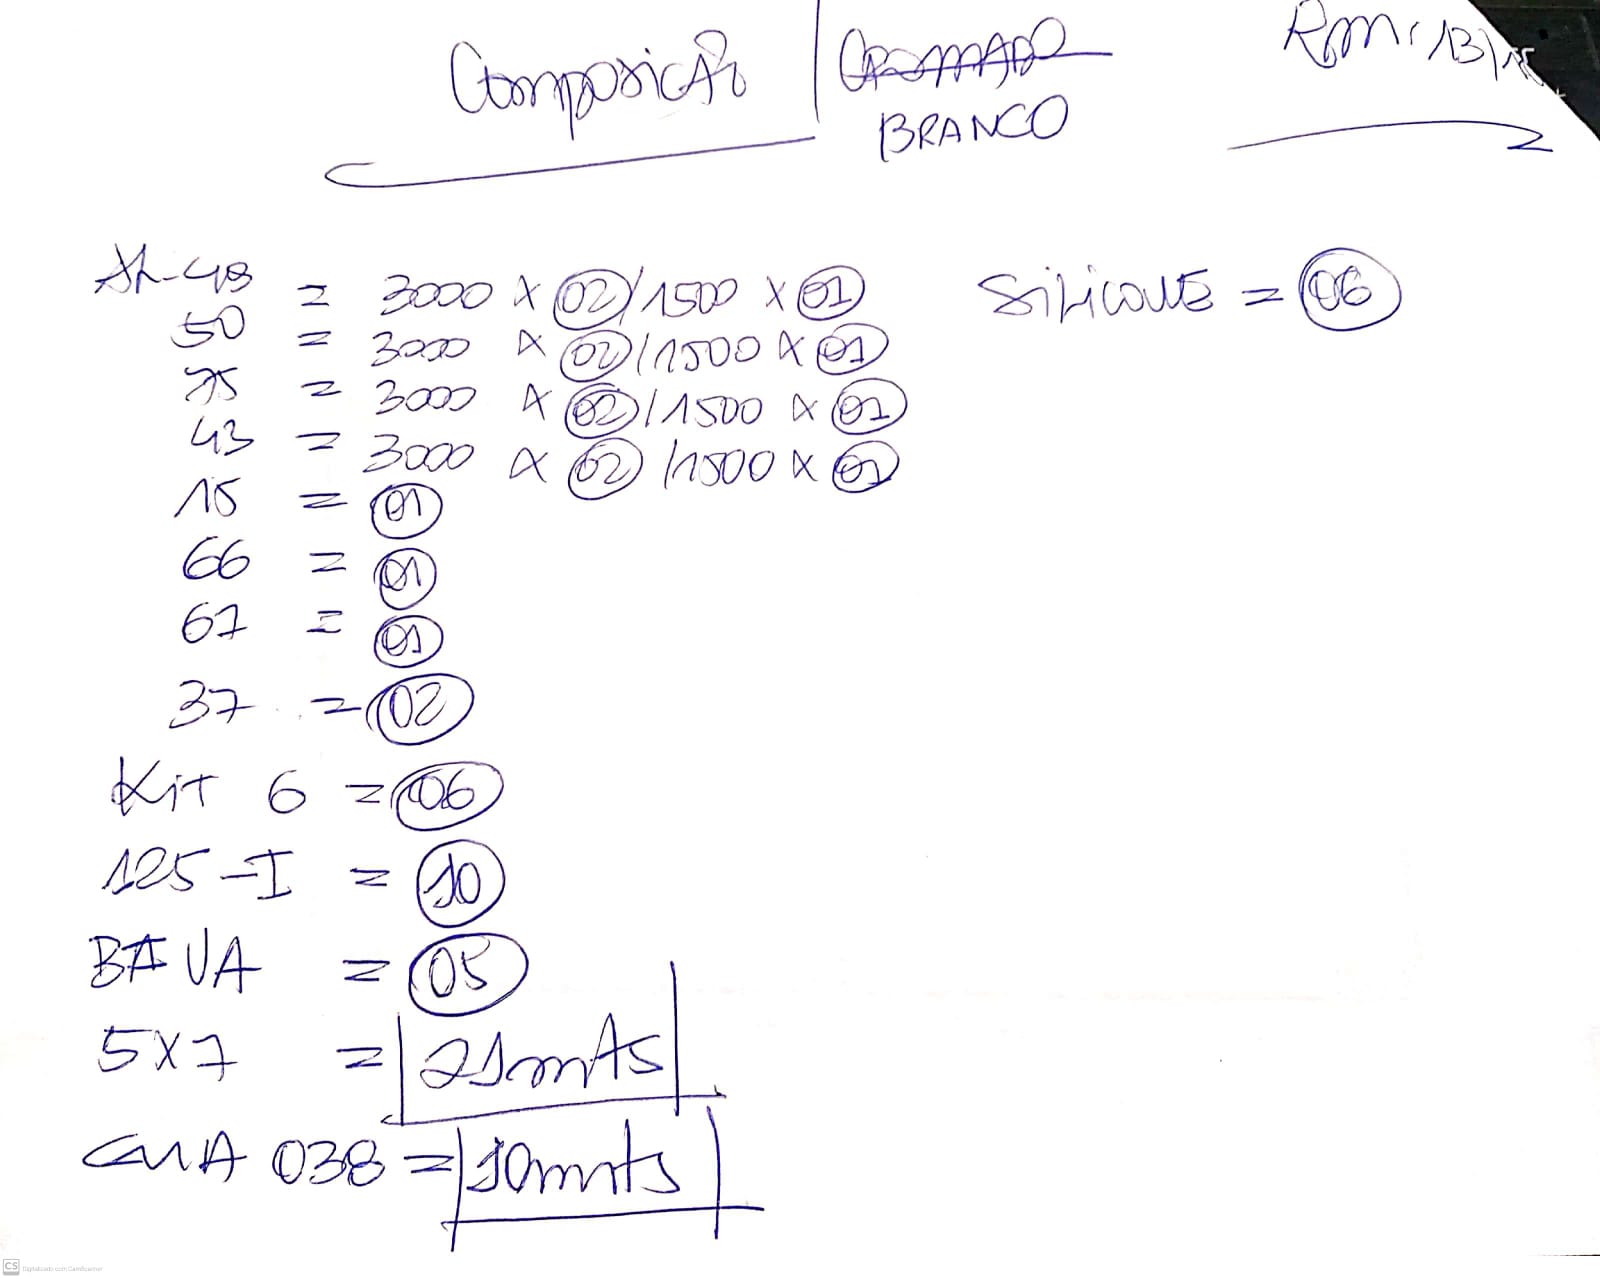 Composição | CROMADO Rm: 13/
BRANCO
AL-48 = 3000 X 02 / 1500 X 01 Silicone = 06
50 = 3000 X 02 / 1500 X 01
75 = 3000 X 02 / 1500 X 01
43 = 3000 X 02 / 1500 X 01
15 = 01
66 = 01
67 = 01
37 = 02
Kit 6 = 06
125-I = 10
BAVA = 05
5X7 = 21mts
CUIA 038 = 10mts
CS Digitalizado com CamScanner